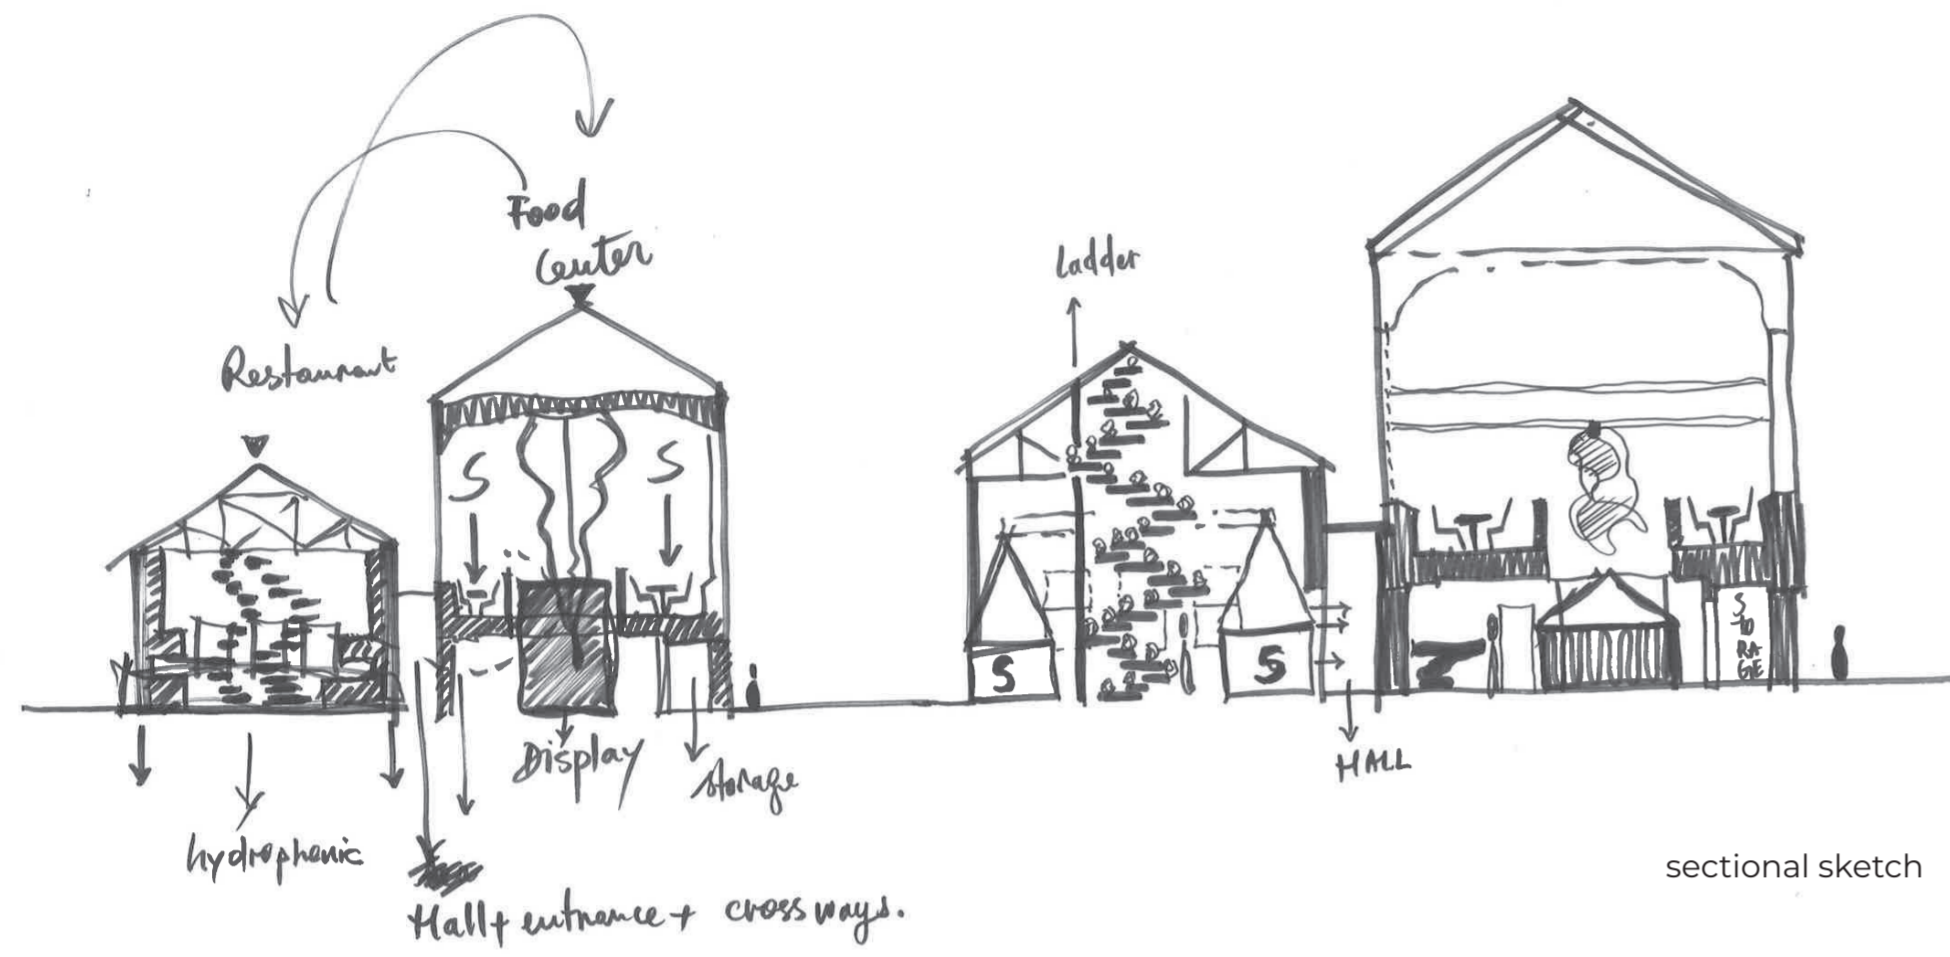 Food
Center
Restaurant
Ladder
S
S
S
S
S
TO
RA
GE
Display
Storage
HALL
hydrophenic
Hall + entrance + crossways.
sectional sketch